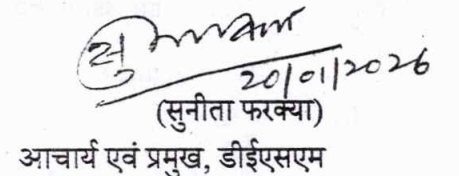 20/01/2026
(सुनीता फरक्या)
आचार्य एवं प्रमुख, डीईएसएम